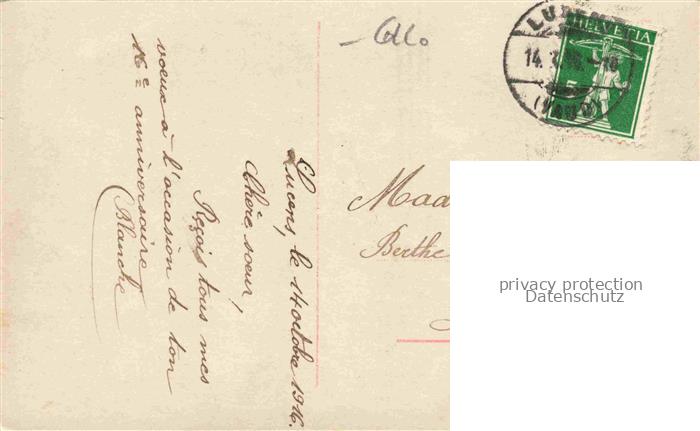 Lucens, le 14 octobre 1916.
Chère soeur,
Reçois tous mes
voeux à l'occasion de ton
16e anniversaire
Blanche
HELVETIA
5
LUCENS
14. X. 16
(VAUD)
Mad
Berthe
privacy protection
Datenschutz